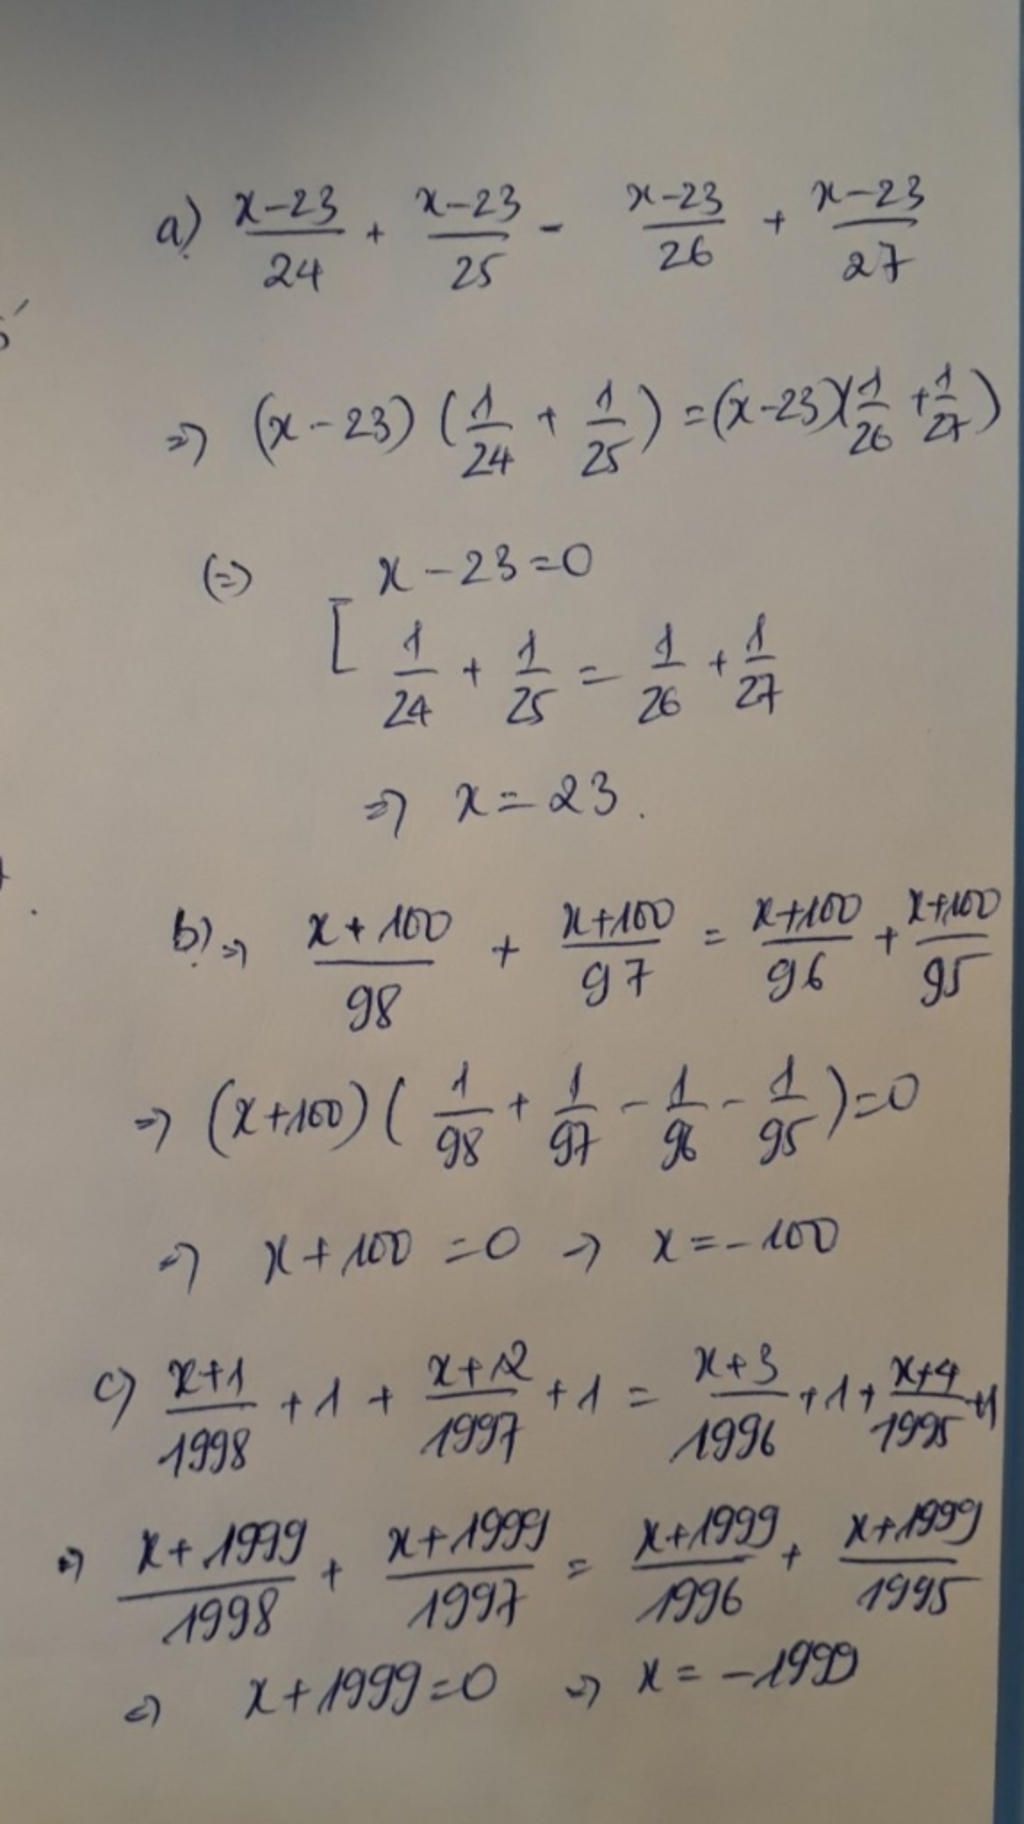 a) x-23/24 + x-23/25 - x-23/26 + x-23/27
=> (x-23) (1/24 + 1/25) = (x-23)(1/26 + 1/27)
(=> [ x-23=0
1/24 + 1/25 = 1/26 + 1/27
=> x=23.
b) => x+100/98 + x+100/97 = x+100/96 + x+100/95
=> (x+100) ( 1/98 + 1/97 - 1/96 - 1/95 )=0
=> x+100=0 => x=-100
c) x+1/1998 +1 + x+2/1997 +1 = x+3/1996 +1+ x+4/1995 +1
=> x+1999/1998 + x+1999/1997 = x+1999/1996 + x+1999/1995
=> x+1999=0 => x=-1999